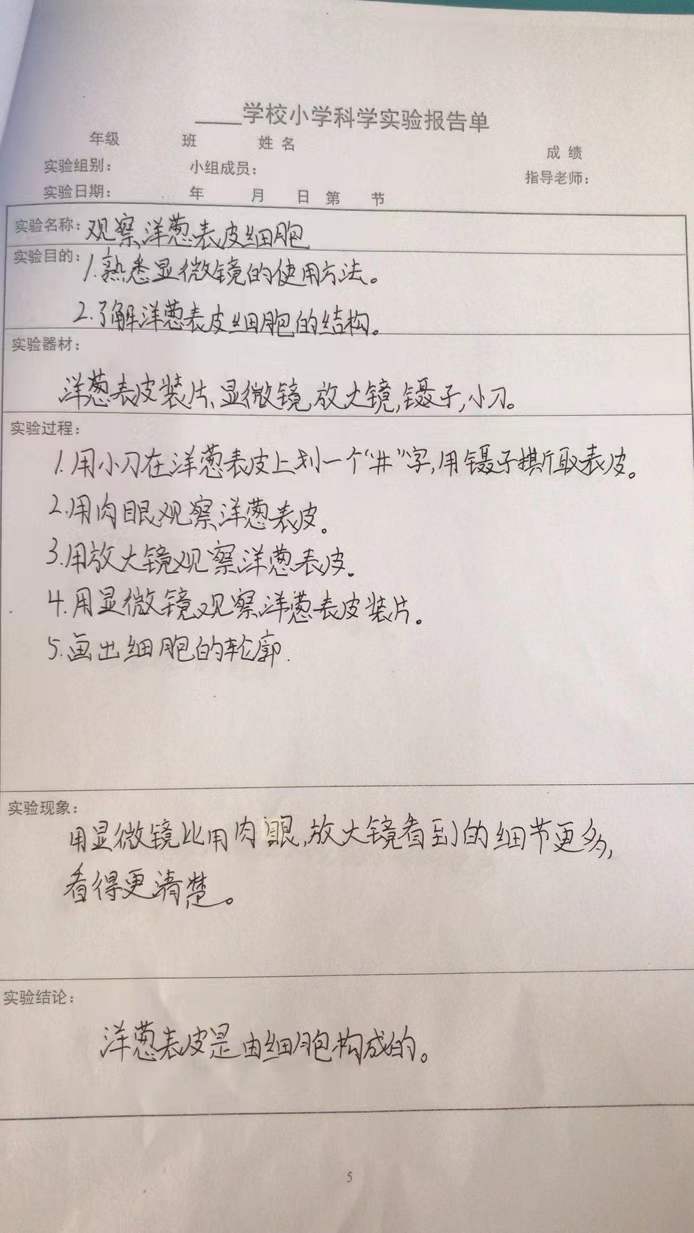 ____学校小学科学实验报告单
年级 班 姓名 成绩
实验组别： 小组成员： 指导老师：
实验日期： 年 月 日 第 节
实验名称：观察洋葱表皮细胞
实验目的：1.熟悉显微镜的使用方法。
2.了解洋葱表皮细胞的结构。
实验器材：
洋葱表皮装片、显微镜,放大镜,镊子,小刀。
实验过程：
1.用小刀在洋葱表皮上划一个“井”字,用镊子撕取表皮。
2.用肉眼观察洋葱表皮。
3.用放大镜观察洋葱表皮.
4.用显微镜观察洋葱表皮装片。
5.画出细胞的轮廓.
实验现象：
用显微镜比用肉眼,放大镜看到的细节更多,
看得更清楚。
实验结论：
洋葱表皮是由细胞构成的。
5